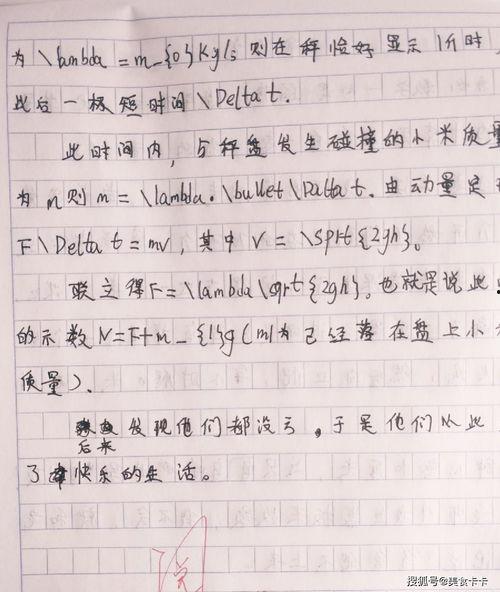 为\lambda=m_{0}Kg/s 则在秤恰好显示1斤时
此后一极短时间\Delta t.
此时间内,与秤盘发生碰撞的小米质量
为m则m=\lambda.\bullet\Daltat.由动量定
F\Delta t=mv,其中V=\sprt{2gh}。
联立得F=\lambda\sqrt{2gh}。也就是说此
的示数N=F+m_{1}g(m1为已经落在盘上小
质量).
发现他们都没云,于是他们从此
后来
了快乐的生活。
阅
搜狐号@美食卡卡